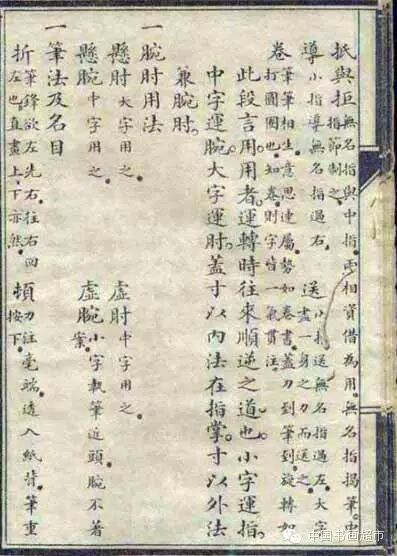 抵與拒 無名指與中指兩相資借為用無名指揭筆中指節制之
導 小指導無名指過右 送 小指送無名指過左大字盡一身之力而送之
卷 筆筆相生意思連屬勢如卷書蓋力到筆到旋轉如打圈圈也知卷則字皆一氣貫注
此段言用用者運轉時往來順逆之道也小字運指
中字運腕大字運肘蓋寸以內法在指掌寸以外法
兼腕肘
一 腕肘用法
懸肘 大字用之 虛肘 中字用之
懸腕 中字用之 虛腕 小字執筆近頭腕不著案
一 筆法及名目
折 筆鋒欲左先右往右回左也直畫上下亦然 頓 力注毫端透入紙背筆重按下
中国书画超市